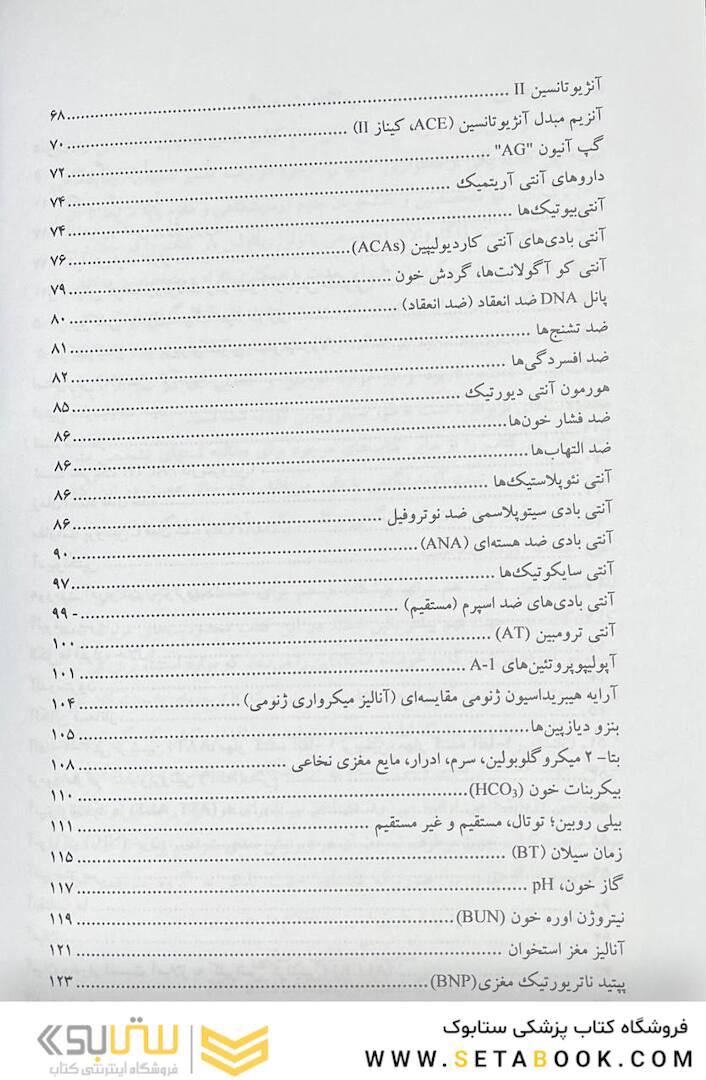 آنژیوتانسین II ........ ۶۸
آنزیم مبدل آنژیوتانسین (ACE، کیناز II) ........ ۷۰
گپ آنیون "AG" ........ ۷۲
داروهای آنتی آریتمیک ........ ۷۴
آنتی‌بیوتیک‌ها ........ ۷۴
آنتی بادی‌های آنتی کاردیولیپین (ACAs) ........ ۷۶
آنتی کو آگولانت‌ها، گردش خون ........ ۷۹
پانل DNA ضد انعقاد (ضد انعقاد) ........ ۸۰
ضد تشنج‌ها ........ ۸۱
ضد افسردگی‌ها ........ ۸۲
هورمون آنتی دیورتیک ........ ۸۵
ضد فشار خون‌ها ........ ۸۶
ضد التهاب‌ها ........ ۸۶
آنتی نئوپلاستیک‌ها ........ ۸۶
آنتی بادی سیتوپلاسمی ضد نوتروفیل ........ ۸۶
آنتی بادی ضد هسته‌ای (ANA) ........ ۹۰
آنتی سایکوتیک‌ها ........ ۹۷
آنتی بادی‌های ضد اسپرم (مستقیم) ........ - ۹۹
آنتی ترومبین (AT) ........ ۱۰۰
آپولیپوپروتئین‌های A-1 ........ ۱۰۱
آرایه هیبریداسیون ژنومی مقایسه‌ای (آنالیز میکرواری ژنومی) ........ ۱۰۴
بنزو دیازپین‌ها ........ ۱۰۵
بتا- ۲ میکروگلوبولین، سرم، ادرار، مایع مغزی نخاعی ........ ۱۰۸
بیکربنات خون (HCO₃) ........ ۱۱۰
بیلی روبین؛ توتال، مستقیم و غیر مستقیم ........ ۱۱۱
زمان سیلان (BT) ........ ۱۱۵
گاز خون، pH ........ ۱۱۷
نیتروژن اوره خون (BUN) ........ ۱۱۹
آنالیز مغز استخوان ........ ۱۲۱
پپتید ناتریورتیک مغزی (BNP) ........ ۱۲۳
فروشگاه کتاب پزشکی ستابوک
WWW.SETABOOK.COM
ستابوک
فروشگاه اینترنتی کتاب